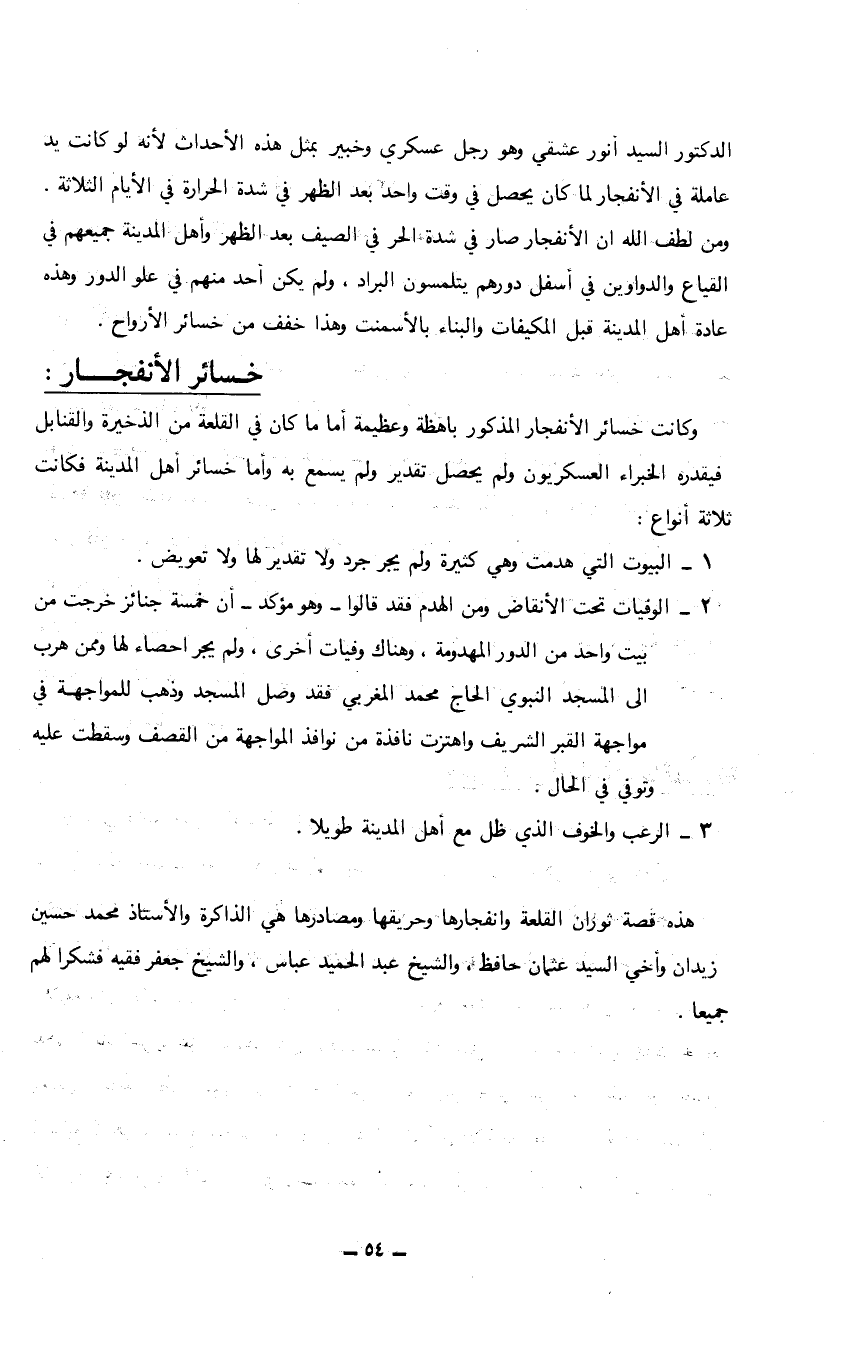 الدكتور السيد أنور عشقي وهو رجل عسكري وخبير بمثل هذه الأحداث لأنه لو كانت يد
عاملة في الأنفجار لما كان يحصل في وقت واحد بعد الظهر في شدة الحرارة في الأيام الثلاثة .
ومن لطف الله ان الأنفجار صار في شدة الحر في الصيف بعد الظهر وأهل المدينة جميعهم في
القياع والدواوين في أسفل دورهم يتلمسون البراد ، ولم يكن أحد منهم في علو الدور وهذه
عادة أهل المدينة قبل المكيفات والبناء بالأسمنت وهذا خفف من خسائر الأرواح .
خسائر الأنفجار :
وكانت خسائر الأنفجار المذكور باهظة وعظيمة أما ما كان في القلعة من الذخيرة والقنابل
فيقدره الخبراء العسكريون ولم يحصل تقدير ولم يسمع به وأما خسائر أهل المدينة فكانت
ثلاثة أنواع :
١ - البيوت التي هدمت وهي كثيرة ولم يجر جرد ولا تقدير لها ولا تعويض .
٢ - الوفيات تحت الأنقاض ومن الهدم فقد قالوا - وهو مؤكد - أن خمسة جنائز خرجت من
بيت واحد من الدور المهدومة ، وهناك وفيات أخرى ، ولم يجر احصاء لها وممن هرب
الى المسجد النبوي الحاج محمد المغربي فقد وصل المسجد وذهب للمواجهة في
مواجهة القبر الشريف واهتزت نافذة من نوافذ المواجهة من القصف وسقطت عليه
وتوفي في الحال .
٣ - الرعب والخوف الذي ظل مع أهل المدينة طويلا .
هذه قصة ثوران القلعة وانفجارها وحريقها ومصادرها هي الذاكرة والأستاذ محمد حسين
زيدان وأخي السيد عثمان حافظ ، والشيخ عبد الحميد عباس ، والشيخ جعفر فقيه فشكرا لهم
جميعا .
- ٥٤ -